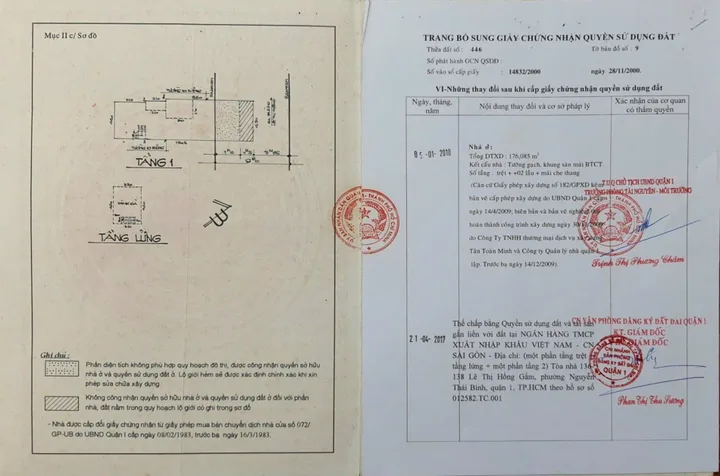 Mục II c/ Sơ đồ
TẦNG 1
TẦNG LỬNG
Ghi chú :
Phần diện tích không phù hợp quy hoạch đô thị, được công nhận quyền sở hữu
nhà ở và quyền sử dụng đất ở. Lộ giới hẻm sẽ được xác định chính xác khi xin
phép sửa chữa xây dựng.
Không công nhận quyền sở hữu nhà ở và quyền sử dụng đất ở đối với phần
nhà, đất nằm trong quy hoạch lộ giới có ghi trong sơ đồ
- Nhà được cấp đổi giấy chứng nhận từ giấy phép mua bán chuyển dịch nhà cửa số 072/
GP-UB do UBND Quận I cấp ngày 08/02/1983, trước bạ ngày 16/3/1983.
TRANG BỔ SUNG GIẤY CHỨNG NHẬN QUYỀN SỬ DỤNG ĐẤT
Thửa đất số : 446 Tờ bản đồ số : 9
Số phát hành GCN QSDĐ :
Số vào sổ cấp giấy : 14832/2000 ngày 28/11/2000.
VI-Những thay đổi sau khi cấp giấy chứng nhận quyền sử dụng đất
Ngày, tháng, năm
Nội dung thay đổi và cơ sở pháp lý
Xác nhận của cơ quan có thẩm quyền
-01- 2010
Nhà ở :
Tổng DTXD : 176,085 m²
Kết cấu nhà : Tường gạch, khung sàn mái BTCT
Số tầng : trệt + +02 lầu + mái che thang
(Căn cứ Giấy phép xây dựng số 182/GPXD kèm
bản vẽ cấp phép xây dựng do UBND Quận 1 cấp
ngày 14/8/2009; biên bản và bản vẽ nghiệm thu
hoàn thành công trình xây dựng ngày
do Công ty TNHH thương mại dịch vụ xây dựng
Tân Toàn Minh và Công ty Quản lý nhà quận 1
lập. Trước bạ ngày 14/12/2009).
TUQ CHỦ TỊCH UBND QUẬN 1
TRƯỞNG PHÒNG TÀI NGUYÊN - MÔI TRƯỜNG
Trịnh Thị Phương Châm
21 -04- 2017
Thế chấp bằng Quyền sử dụng đất và tài sản
gắn liền với đất tại NGÂN HÀNG TMCP
XUẤT NHẬP KHẨU VIỆT NAM - CN
SÀI GÒN - Địa chỉ: (một phần tầng trệt
tầng lửng + một phần tầng 2) Tòa nhà
138 Lê Thị Hồng Gấm, phường Nguyễn
Thái Bình, quận 1, TP.HCM theo hồ sơ số
012582.TC.001
CN VĂN PHÒNG ĐĂNG KÝ ĐẤT ĐAI QUẬN 1
KT. GIÁM ĐỐC
GIÁM ĐỐC
CHI NHÁNH
VĂN PHÒNG
ĐĂNG KÝ ĐẤT ĐAI
QUẬN 1
Phan Thị Thu Sương